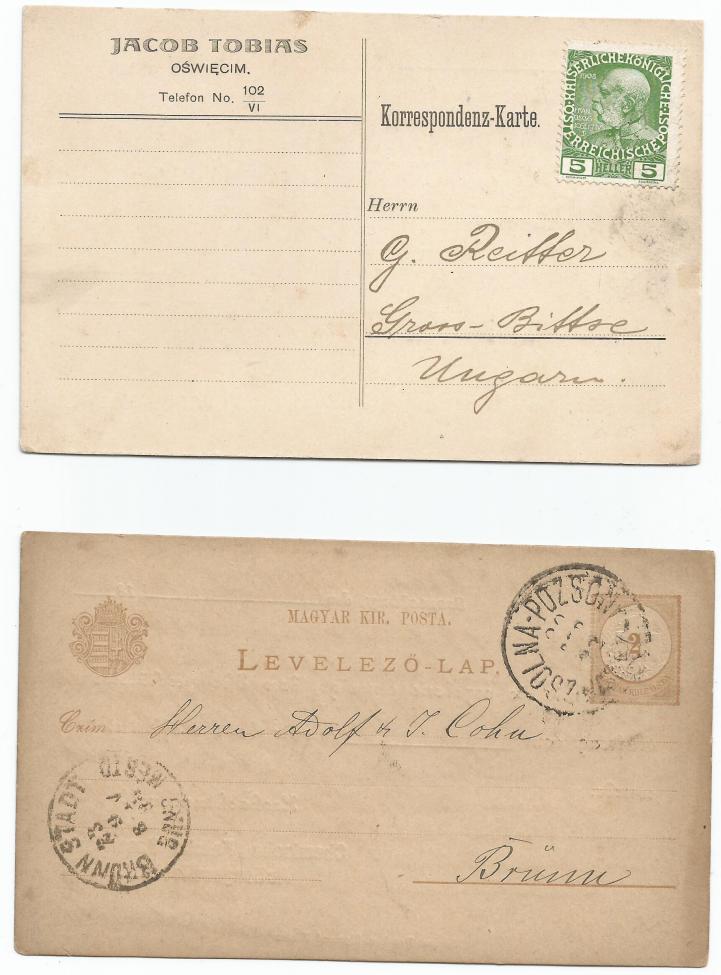 JACOB TOBIAS
OŚWIĘCIM.
Telefon No. 102/VI
Korrespondenz-Karte.
KAISERLICHEKÖNIGLICHE ÖSTERREICHISCHE POST
1908
5 HELLER 5
Herrn
G. Reitter
Gross-Bittse
Ungarn.
MAGYAR KIR. POSTA.
LEVELEZŐ-LAP.
ZSOLNA-POZSONY
2
Czím
Herren Adolf & I. Cohn
BRÜNN STADT
BRNO MĚSTO
Brünn